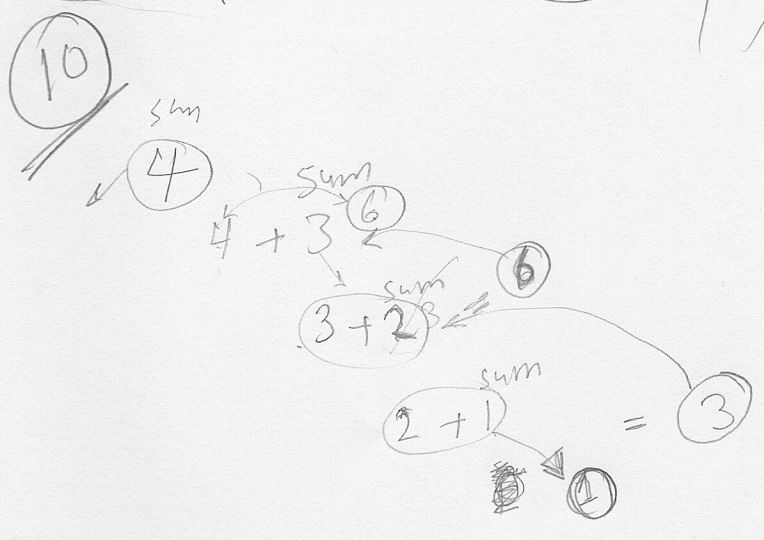 10
sum
4
sum
4 + 3 6
6
sum
3 + 2 3
sum
2 + 1 = 3
1